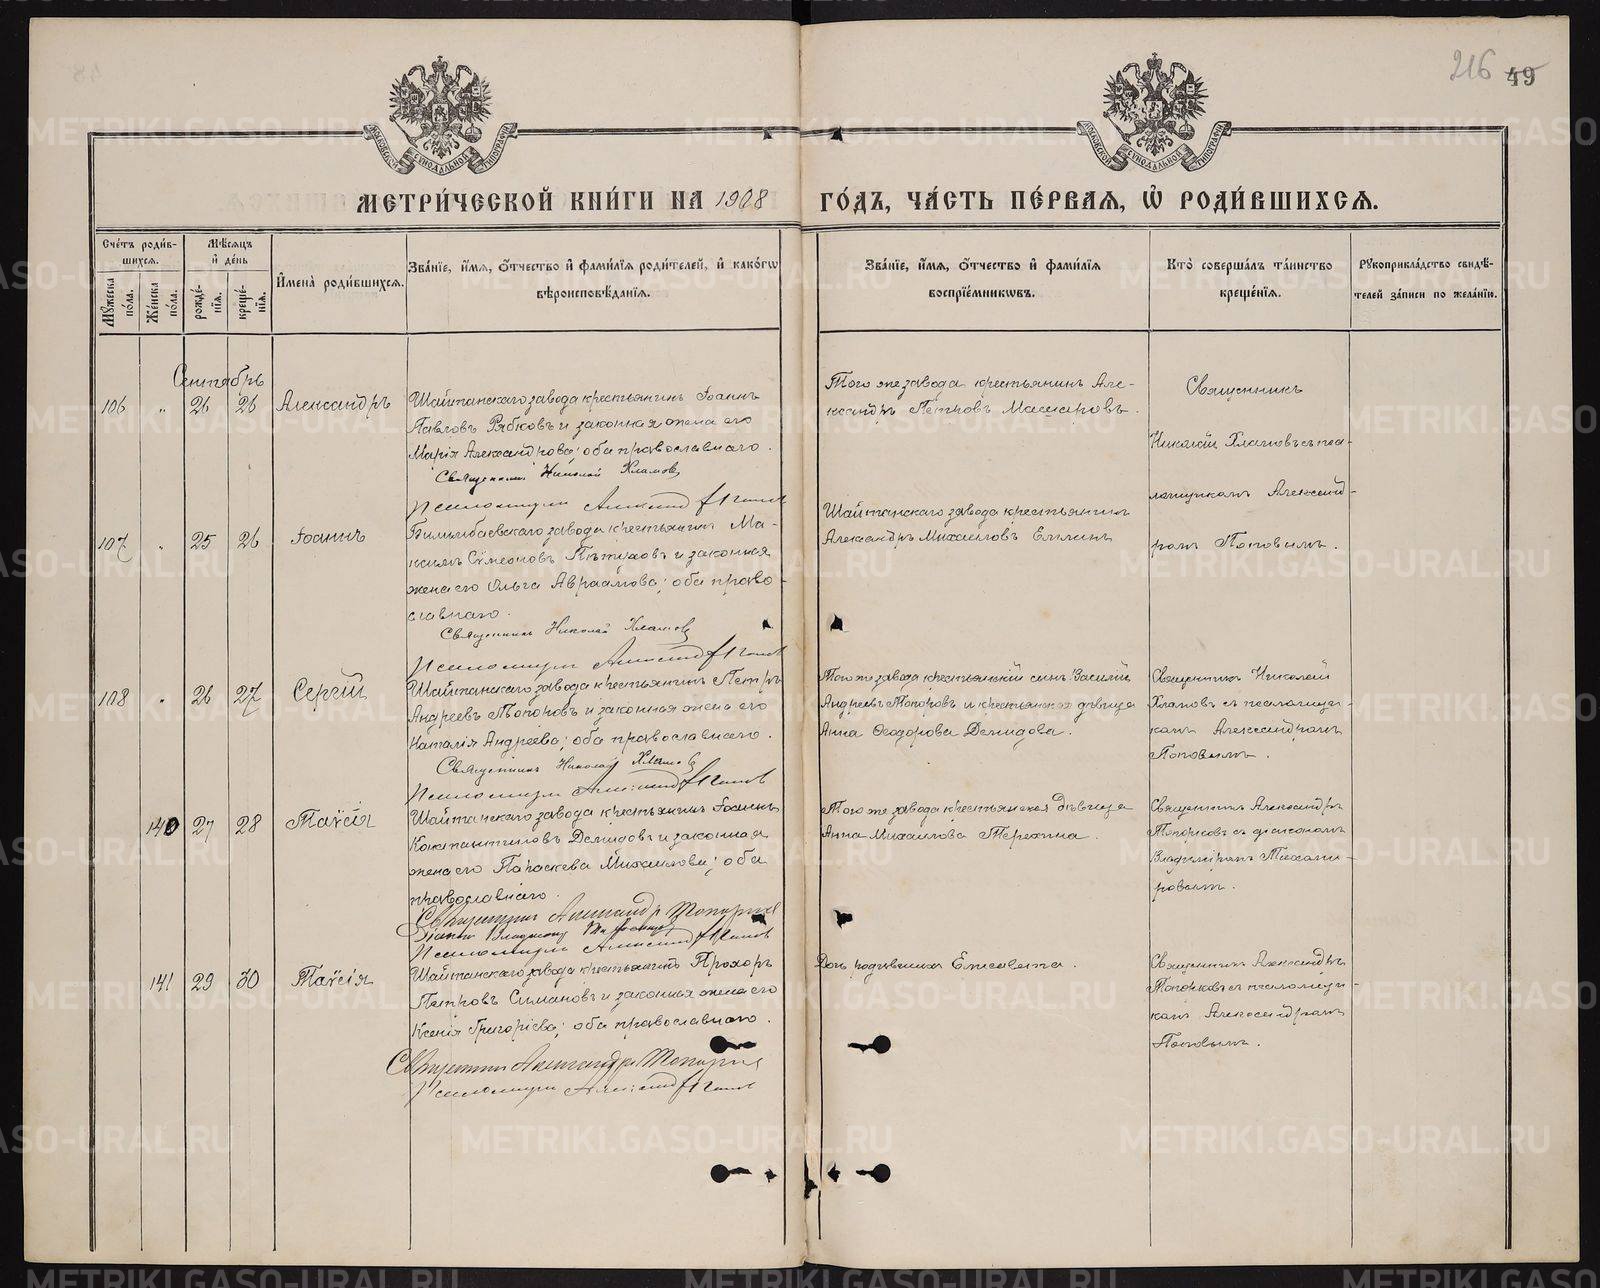 216 49
МОСКОВСКОЙ СѴНОДАЛЬНОЙ ТИПОГРАФІИ
МОСКОВСКОЙ СѴНОДАЛЬНОЙ ТИПОГРАФІИ
МЕТРИ́ЧЕСКОЙ КНИ́ГИ НА 1908 ГО́ДЪ, ЧА́СТЬ ПЕ́РВАЯ, Ѽ РОДИ́ВШИХСѦ.
Сче́тъ роди́в-
шихсѧ.
Мꙋ́жеска по́ла.
Же́нска по́ла.
Мѣ́сѧцъ
и҆ де́нь
рожде́-
нїѧ.
креще́-
нїѧ.
И҆мена̀ роди́вшихсѧ.
Зва́нїе, и҆́мѧ, ѻ҆́тчество и҆ фами́лїѧ роди́телей, и҆ како́гѡ
вѣроисповѣ́данїѧ.
Зва́нїе, и҆́мѧ, ѻ҆́тчество и҆ фами́лїѧ
воспрїе́мникѡвъ.
Кто̀ соверша́лъ та́инство
креще́нїѧ.
Рꙋкоприкла́дство свидѣ́-
телей за́писи по жела́нїю.
Сентябрь
106 " 26 26 Александръ
Шайтанскаго завода крестьянинъ Іоаннъ
Павловъ Рябковъ и законная жена его
Марія Александрова; оба православнаго.
Священникъ Николай Хламовъ
Псаломщикъ Александръ Поповъ
Того же завода крестьянинъ Але-
ксандръ Петровъ Масшаровъ.
Священникъ
Николай Хламовъ съ пса-
ломщикомъ Александ-
ромъ Поповымъ.
107 " 25 26 Іоаннъ
Билимбаевскаго завода крестьянинъ Ма-
ксимъ Сѵмеоновъ Пѣтуховъ и законная
жена его Ольга Авраамова; оба право-
славнаго.
Священникъ Николай Хламовъ
Псаломщикъ Александръ Поповъ
Шайтанскаго завода крестьянинъ
Александръ Михаиловъ Елкинъ
108 " 26 27 Сергій
Шайтанскаго завода крестьянинъ Петръ
Андреевъ Топоровъ и законная жена его
Наталія Андреева; оба православнаго.
Священникъ Николай Хламовъ
Псаломщикъ Александръ Поповъ
Того же завода крестьянскій сынъ Василій
Андреевъ Топоровъ и крестьянская дѣвица
Анна Ѳеодорова Демидова.
Священникъ Николай
Хламовъ съ псаломщи-
комъ Александромъ
Поповымъ.
140 27 28 Таисія
Шайтанскаго завода крестьянинъ Іоаннъ
Константиновъ Демидовъ и законная
жена его Параскева Михаилова; оба
православнаго.
Священникъ Александръ Топорковъ
Діаконъ Владиміръ
Псаломщикъ Александръ Поповъ
Того же завода крестьянская дѣвица
Анна Михаилова Терехина.
Священникъ Александръ
Топорковъ съ діакономъ
Владиміромъ Тихоми-
ровымъ.
141 29 30 Таисія
Шайтанскаго завода крестьянинъ Прохоръ
Петровъ Симановъ и законная жена его
Ксенія Григоріева; оба православнаго.
Священникъ Александръ Топорковъ
Псаломщикъ Александръ Поповъ
Дочь родившихъ Елисавета.
Священникъ Александръ
Топорковъ съ псаломщи-
комъ Александромъ
Поповымъ.
METRIKI.GASO-URAL.RU